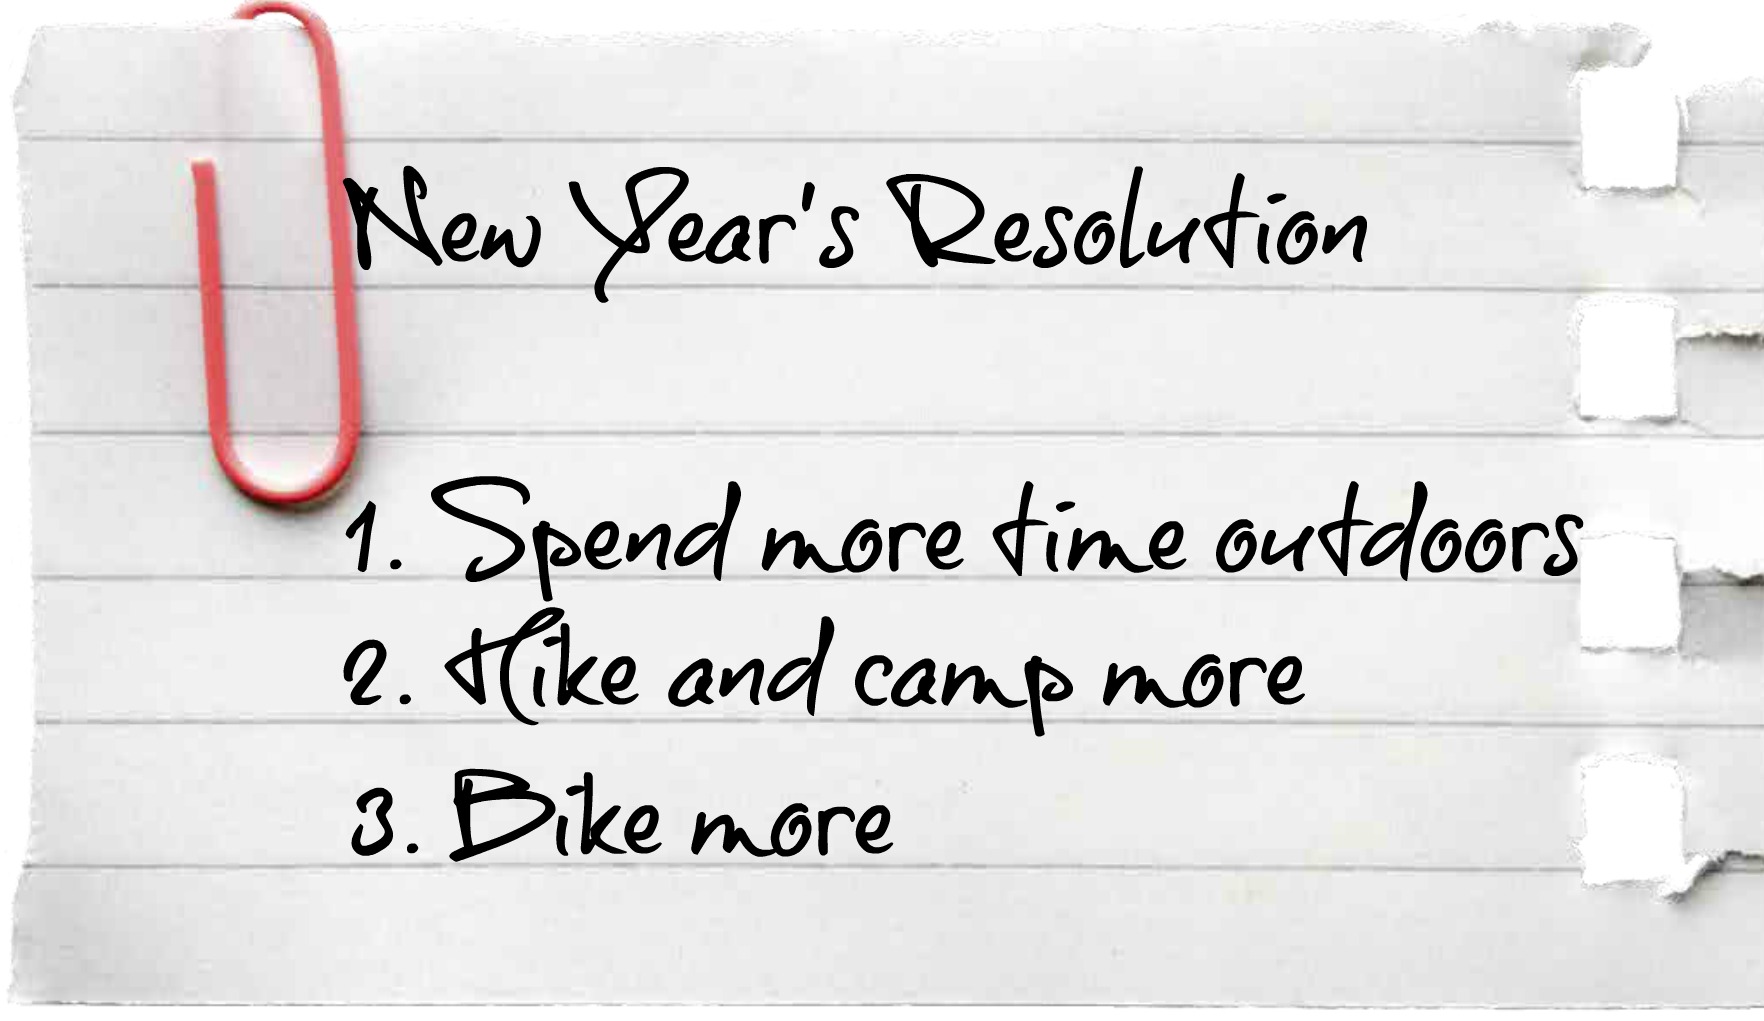 New Year's Resolution
1. Spend more time outdoors
2. Hike and camp more
3. Bike more